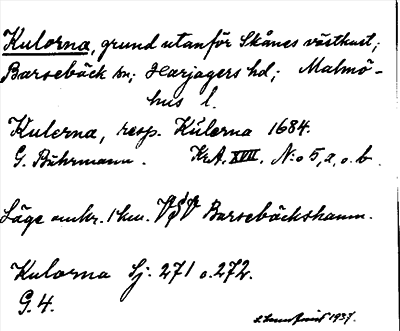 Kulorna, grund utanför Skånes västkust;
Barsebäck sn; Harjagers hd; Malmö-
hus l.
Kulerna, resp. Kúlerna 1684.
G. Buhrmann. KrA. XVII. N:o 5, a, o. b.
Läge omkr. 1 km. VSV Barsebäckshamn.
Kulorna Sj: 271 o. 272.
G. 4.
1937.